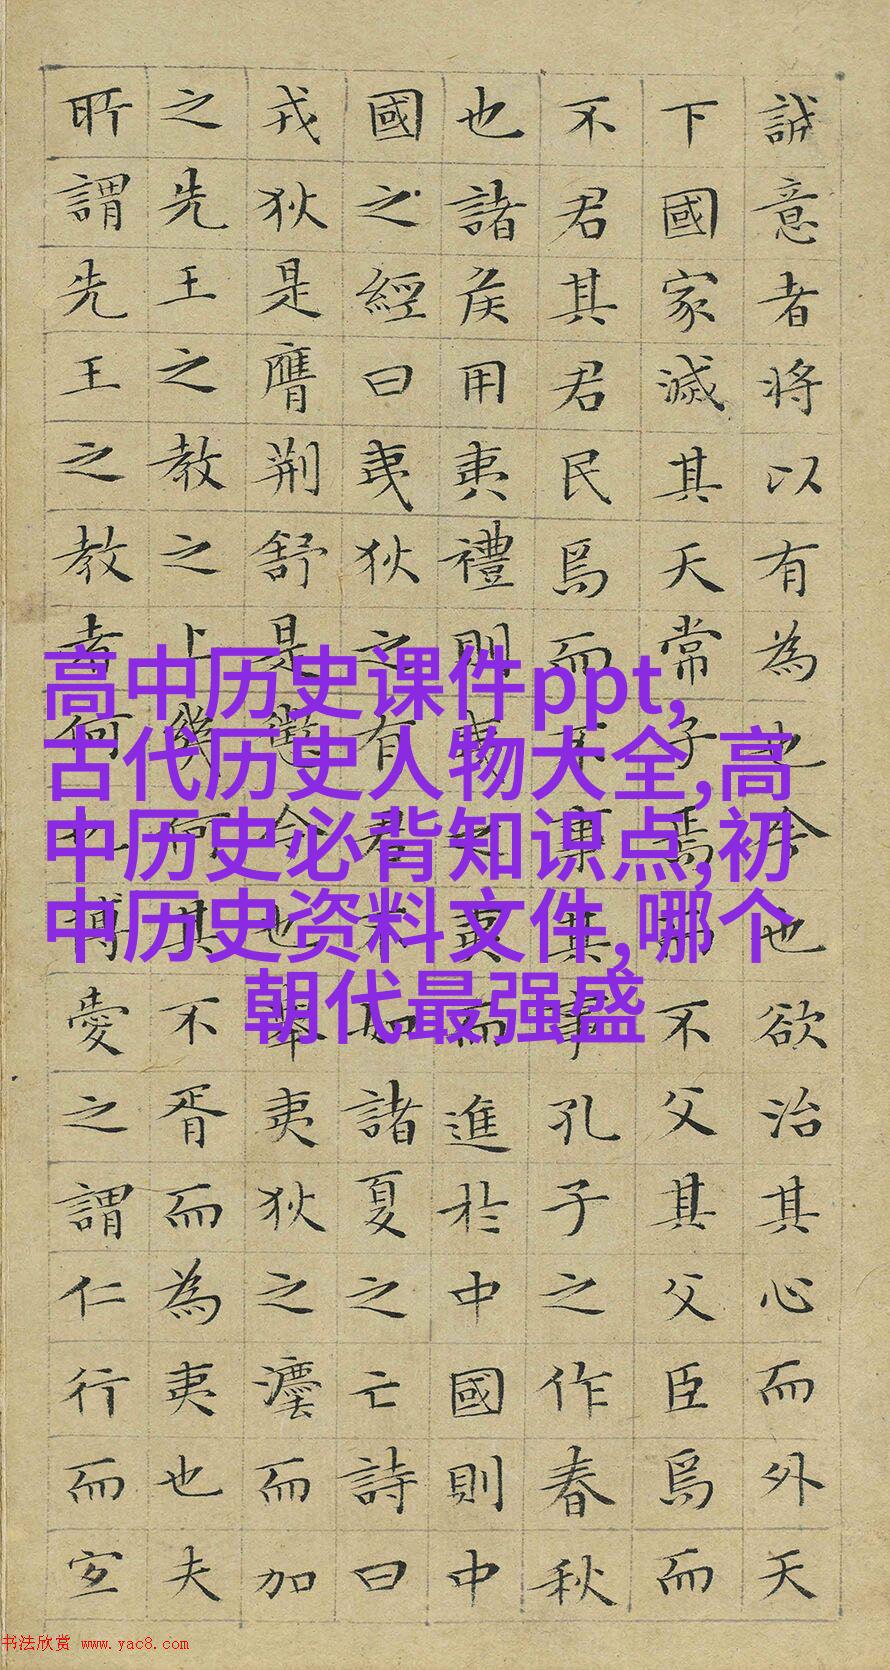 誠意者将以有為也今也欲治其心而外天
下國家滅其天常子焉而不父其父臣焉而
不君其君民焉而不事其事孔子之作春秋
也諸侯用夷禮則夷之夷而進於中國則中
國之經曰夷狄之有君不如諸夏之亡詩曰
戎狄是膺荊舒是懲今也舉夷狄之灋而加
之先王之教之上幾何其不胥而為夷也夫
所謂先王之教者何也博愛之謂仁行而宜
高中历史课件ppt,
古代历史人物大全,高
中历史必背知识点,初
中历史资料文件,哪个
朝代最强盛
书法欣赏 www.yac8.com